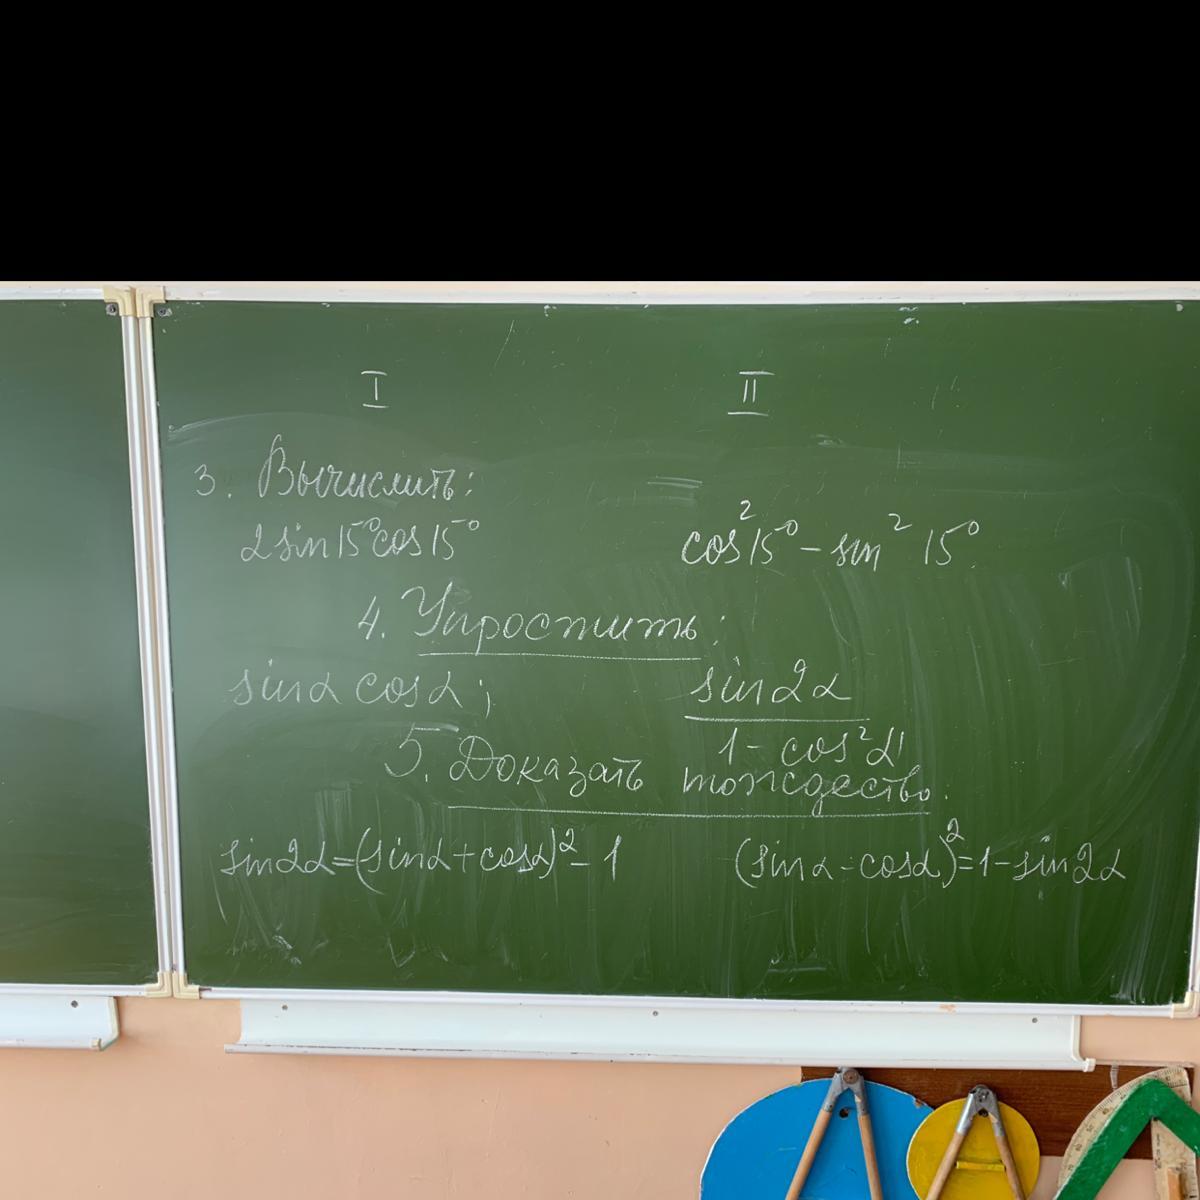 I II
3. Вычислить:
2sin15°cos15° cos²15° – sin²15°.
4. Упростить:
sinα cosα; sin2α / 1 - cos²α
5. Доказать тождество.
sin2α=(sinα+cosα)²-1 (sinα-cosα)²=1-sin2α